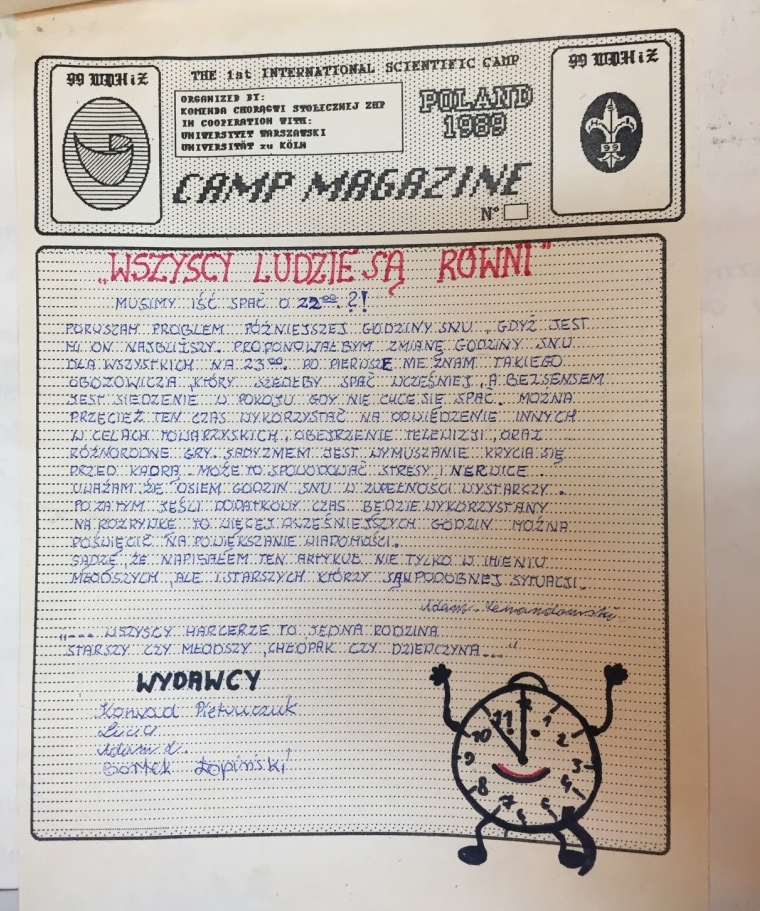 99 WDHiZ
THE 1st INTERNATIONAL SCIENTIFIC CAMP
99 WDHiZ
ORGANIZED BY:
KOMENDA CHORĄGWI STOŁECZNEJ ZHP
IN COOPERATION WITH:
UNIWERSYTET WARSZAWSKI
UNIVERSITÄT zu KÖLN
POLAND
1989
99
CAMP MAGAZINE
N°
„WSZYSCY LUDZIE SĄ RÓWNI"
MUSIMY IŚĆ SPAĆ O 22⁰⁰.?!
PORUSZAM PROBLEM PÓŹNIEJSZEJ GODZINY SNU, GDYŻ JEST
MI ON NAJBLIŻSZY. PROPONOWAŁBYM ZMIANĘ GODZINY SNU
DLA WSZYSTKICH NA 23⁰⁰. PO PIERWSZE NIE ZNAM TAKIEGO
OBOZOWICZA, KTÓRY SZEDŁBY SPAĆ WCZEŚNIEJ, A BEZSENSEM
JEST SIEDZENIE W POKOJU GDY NIE CHCE SIĘ SPAĆ. MOŻNA
PRZECIEŻ TEN CZAS WYKORZYSTAĆ NA ODWIEDZENIE INNYCH
W CELACH TOWARZYSKICH, OBEJRZENIE TELEWIZJI, ORAZ
RÓŻNORODNE GRY. SADYZMEM JEST WYMUSZANIE KRYCIA SIĘ
PRZED KADRĄ. MOŻE TO SPOWODOWAĆ STRESY I NERWICE.
UWAŻAM, ŻE OSIEM GODZIN SNU W ZUPEŁNOŚCI WYSTARCZY.
POZATYM JEŚLI DODATKOWY CZAS BĘDZIE WYKORZYSTANY
NA ROZRYWKĘ TO WIĘCEJ WCZEŚNIEJSZYCH GODZIN MOŻNA
POŚWIĘCIĆ NA POWIĘKSZANIE WIADOMOŚCI.
SĄDZĘ, ŻE NAPISAŁEM TEN ARTYKUŁ NIE TYLKO W IMIENIU
MŁODSZYCH, ALE I STARSZYCH KTÓRZY SĄ W PODOBNEJ SYTUACJI.
Adam Lewandowski
„--- WSZYSCY HARCERZE TO JEDNA RODZINA
STARSZY CZY MŁODSZY, CHŁOPAK CZY DZIEWCZYNA..."
WYDAWCY
Konrad Pietruczuk
Adam L.
Bartek Łopiński!
11! 1 2 3 4 5 6 7 8 9 10